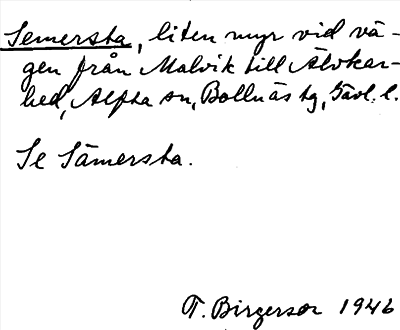 Semersta, liten myr vid vä-
gen från Malvik till Älvkar-
hed, Alfta sn, Bollnäs tg, Gävl. l.
Se Sämersta.
T. Birgerson 1946